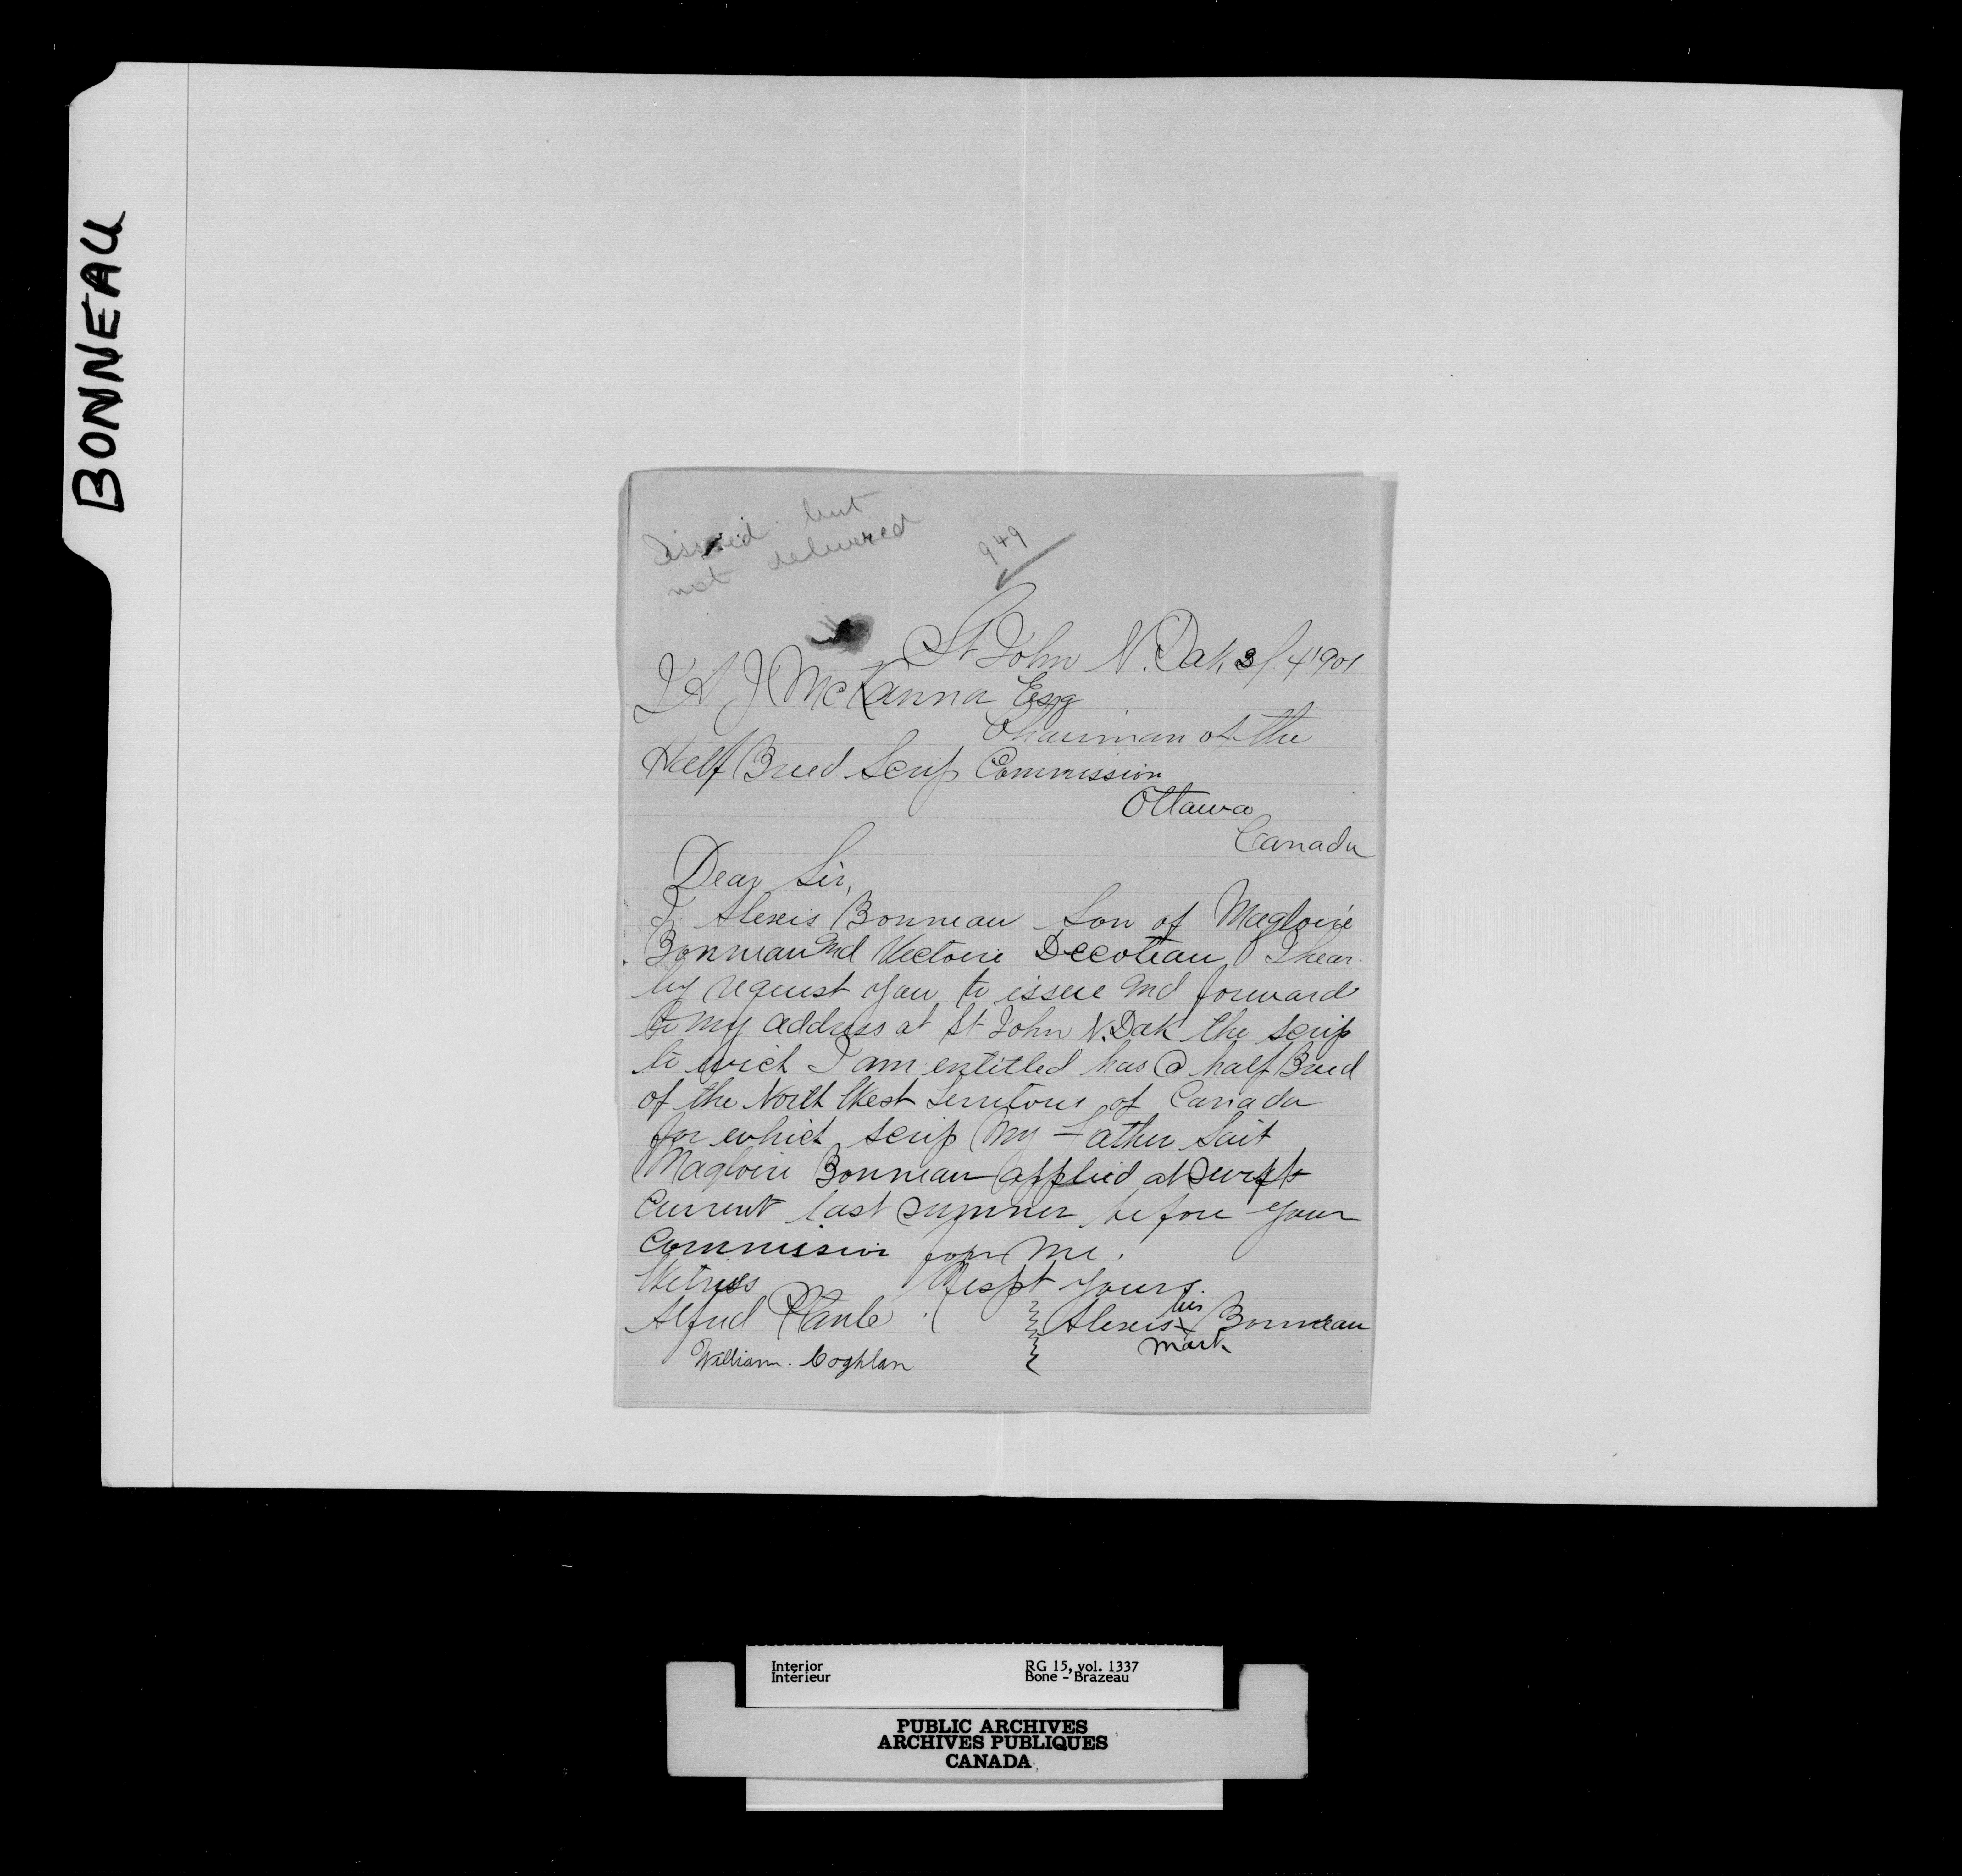 BONNEAU
Issued but
not delivered
949
St John N. Dak 3/4 1901
J A J McKanna Esq
Chairman of the
Half Breed Scrip Commission
Ottawa
Canada
Dear Sir,
I Alexis Bonneau Son of Magloire
Bonneau and Victoire Decoteau I hear-
by request you to issue and forward
to my address at St John N. Dak the scrip
to wich I am entitled has a half Breed
of the North West Territories of Canada
for which scrip my Father Sait
Magloire Bonneau applied at Swift
Current last summer before your
Commission for me.
Witness Respt yours.
Alfred Plante Alexis his x mark Bonneau
William. Coghlan
Interior RG 15, vol. 1337
Intérieur Bone - Brazeau
PUBLIC ARCHIVES
ARCHIVES PUBLIQUES
CANADA